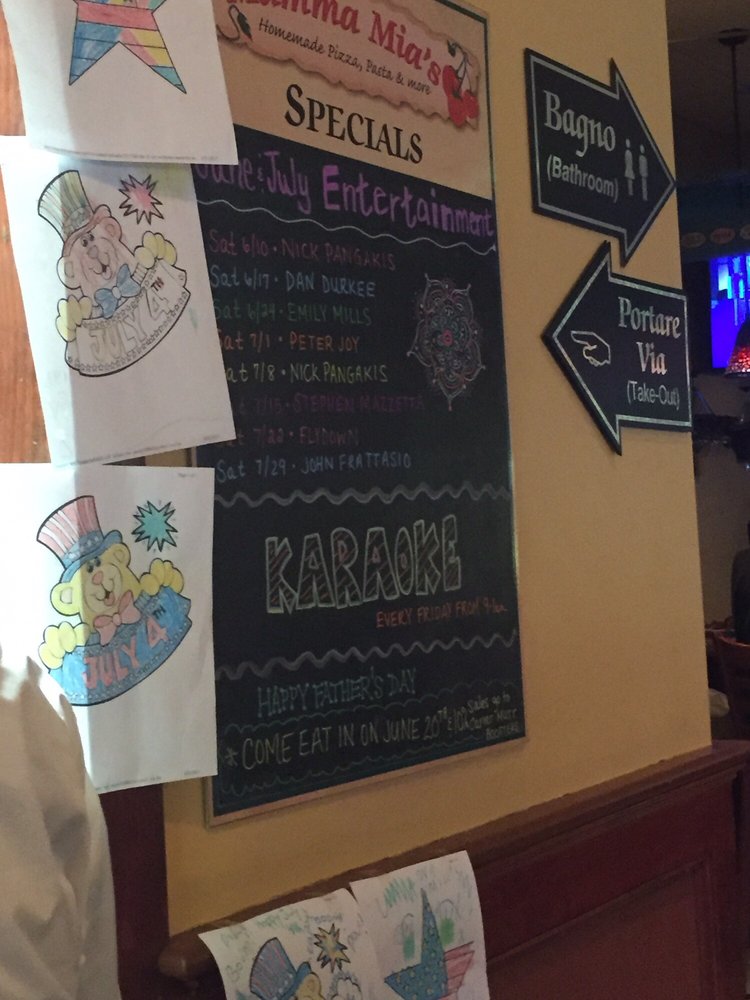 Mamma Mia's
Homemade Pizza, Pasta & more
SPECIALS
June & July Entertainment
Sat 6/10 • NICK PANGAKIS
Sat 6/17 • DAN DURKEE
Sat 6/24 • EMILY MILLS
Sat 7/1 • PETER JOY
Sat 7/8 • NICK PANGAKIS
Sat 7/15 • STEPHEN MAZZETTA
Sat 7/22 • FLYDOWN
Sat 7/29 • JOHN FRATTASIO
KARAOKE
EVERY FRIDAY FROM 9-1am
HAPPY FATHER'S DAY
* COME EAT IN ON JUNE 20TH &
Sales up to
Bagno
(Bathroom)
Portare
Via
(Take-Out)
JULY 4TH
JULY 4TH